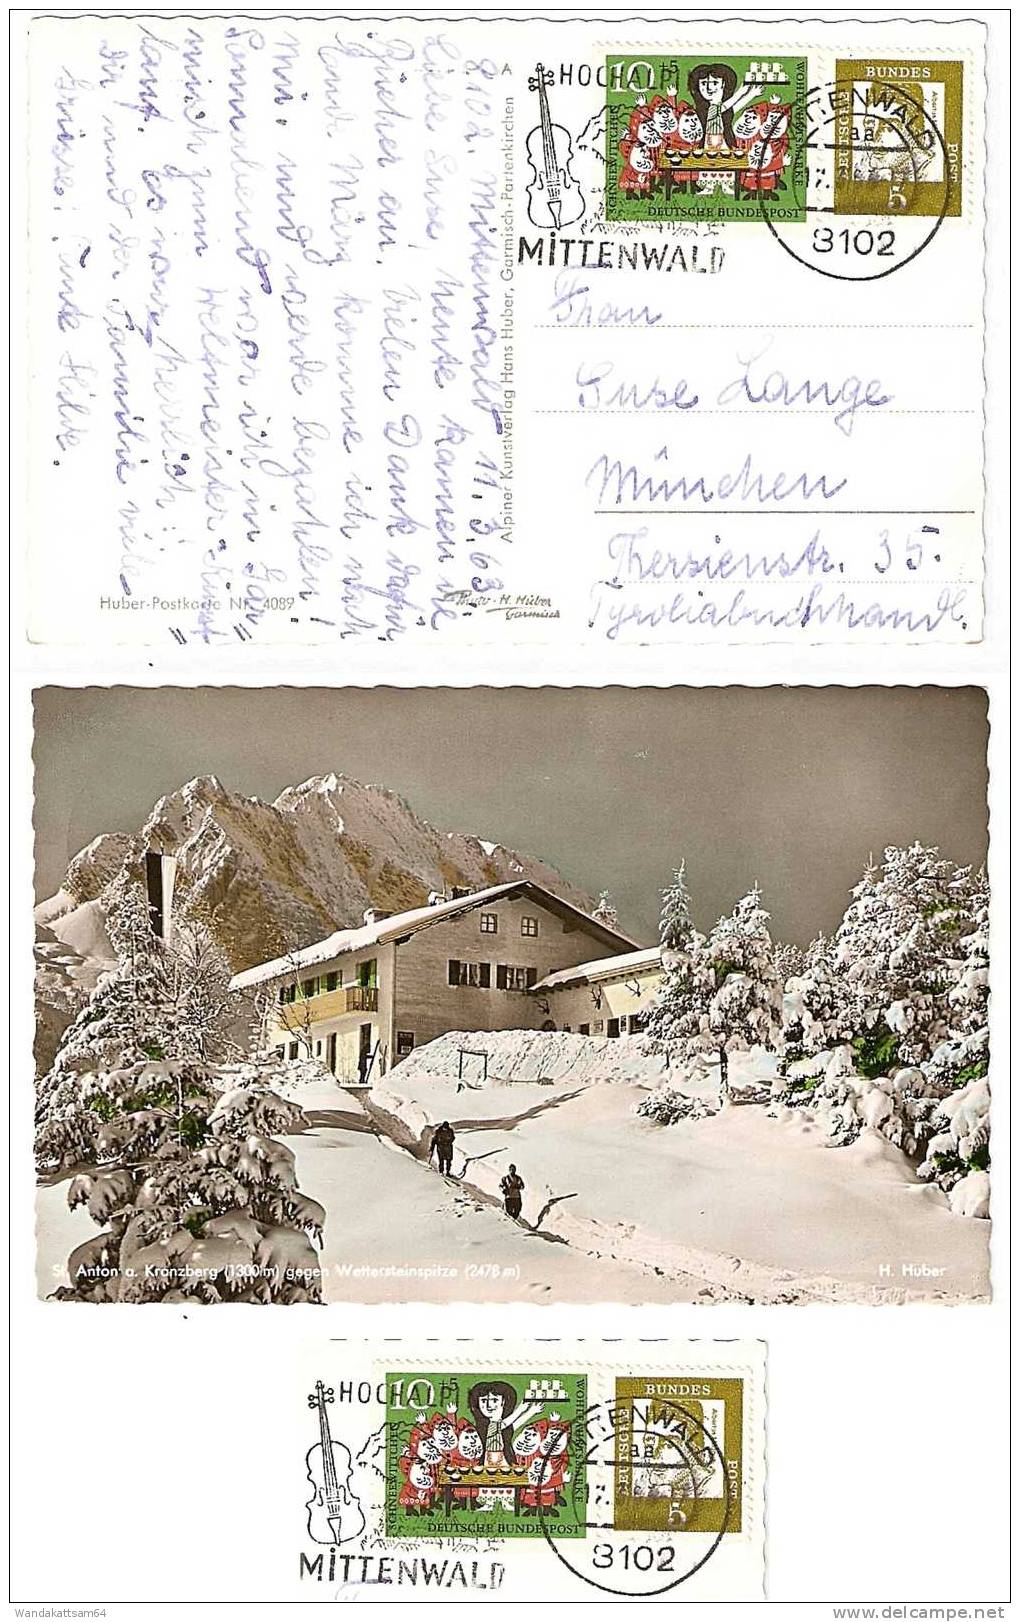 8102 Mittenwald 11.3.63
Liebe Suse! Heute kamen die
Bücher an. Vielen Dank dafür.
End. März komme ich nach
Mü. und werde bezahlen!
Sonnabend war ich in Gar=
misch zum Weltmeister-Kunst=
lauf. Es war herrlich!
Dir und der Familie viele
Grüsse! Hilde.
A
Alpiner Kunstverlag Hans Huber, Garmisch-Partenkirchen
Huber-Postkarte Nr. 4089
Photo-H. Huber
Garmisch
HOCHALP
MITTENWALD
10+5
SCHNEEWITTCHEN
WOHLFAHRTSMARKE
DEUTSCHE BUNDESPOST
TTENWALD
aa
8102
DEUTSCHE
BUNDES
POST
5
Frau
Suse Lange
München
Thersienstr. 35.
Tyroliabuchhandl.
St. Anton a. Kranzberg (1300 m) gegen Wettersteinspitze (2478 m)
H. Huber
HOCHALP
MITTENWALD
10+5
SCHNEEWITTCHEN
WOHLFAHRTSMARKE
DEUTSCHE BUNDESPOST
TTENWALD
aa
8102
DEUTSCHE
BUNDES
POST
5
Wandakattsam64
www.delcampe.net